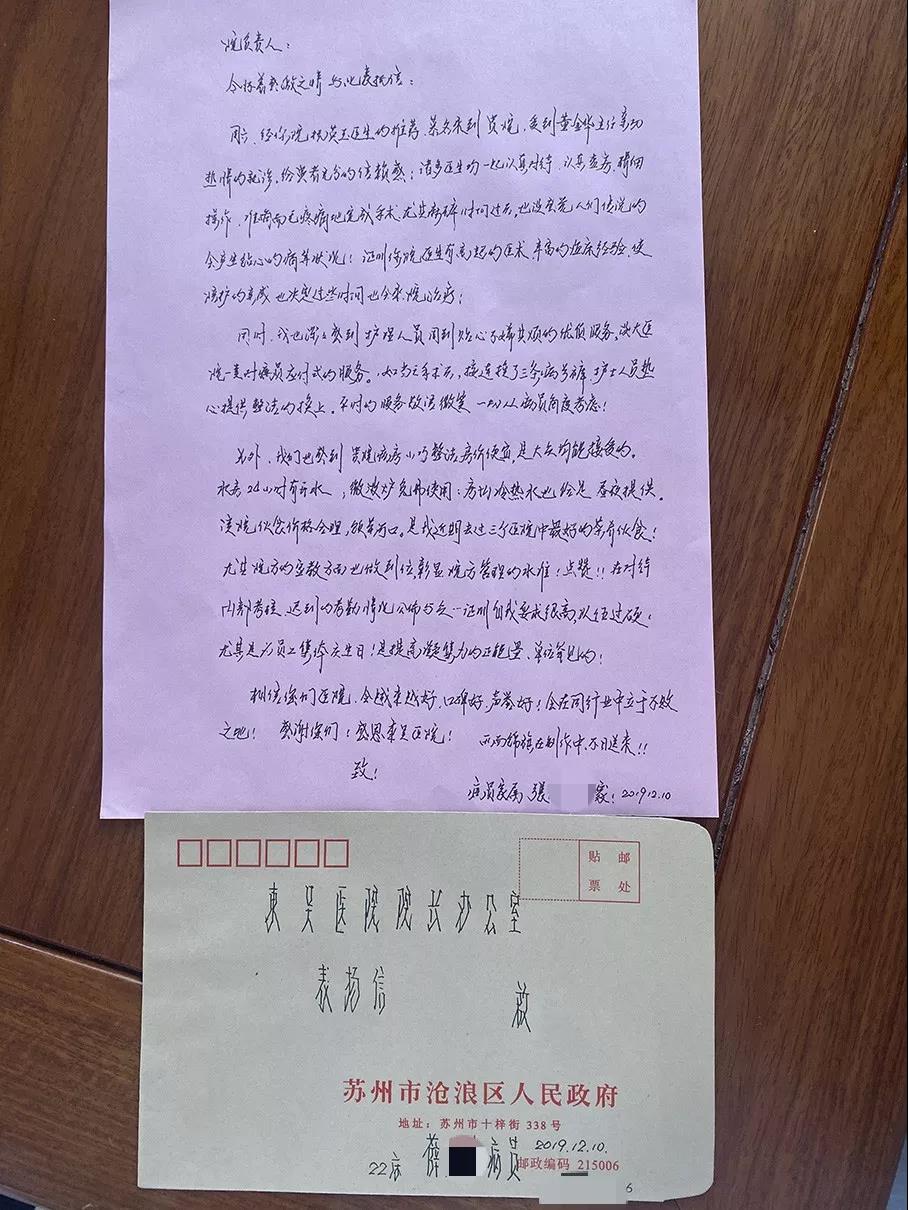 院负责人：
今怀着感激之情写此表扬信：
同志、经你院 医生的推荐、慕名来到贵院，受到黄金华主任亲切
热情的就诊，给患者充分的信赖感；诸多医生均一一认真对待、认真查房、精细
操作、准确而无疼痛地完成手术，尤其麻醉时间过后，也没出现人们传说的
会产生钻心的疼痛状况！证明你院医生有高超的医术、丰富的临床经验、使
也决定过些时间也会来 院治疗；
同时、我也深深感到护理人员周到贴心不嫌其烦的优质服务，没大医
院一直对病员应付式的服务。如当天手术后，接连换了三条病号裤，护士人员热
心提供整洁的换上。平时的服务 微笑 一切从病员角度考虑！
另外、我们也感到贵院病房小巧整洁，房价便宜，是大众均能接受的。
水房24小时有开水，微波炉免费使用；房内冷热水也给足 昼夜提供。
该院伙食价格合理，饭菜可口。是我近期去过三个医院中最好的菜肴伙食！
尤其院方的 方面也做到位，彰显院方管理的水准！点赞！！在对待
内部考核、迟到的考勤情况公布 证明自我要求很高，队伍过硬，
尤其是为员工集体庆生日！是提高凝集力的正能量、单位 见的！
相信您们医院、会越来越好，口碑好，声誉好！会在同行业中立于不败
之地！ 感谢你们！感恩东吴医院！ 两面锦旗在制作中，不日送来！！
致！
病员家属 張 家：2019.12.10
贴 邮
票 处
東吴医院院长办公室
表扬信 啟
苏州市沧浪区人民政府
地址：苏州市十梓街 338 号
22床 薛 病员 2019.12.10.
邮政编码 215006
6